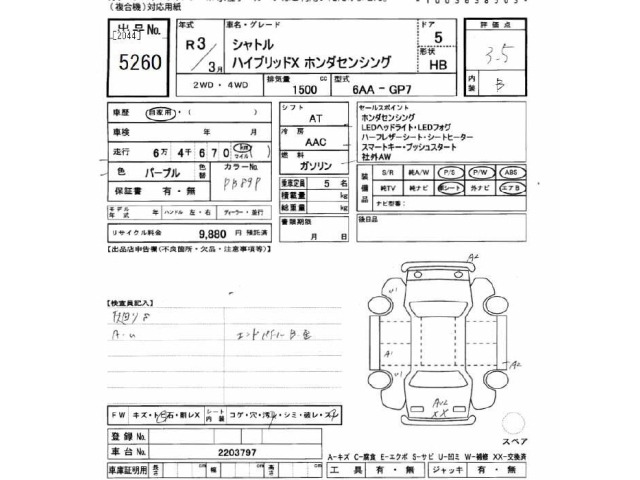 (複合機)対応用紙
出品No.
[2044]
5260
年式
R3/3月
車名・グレード
シャトル
ハイブリッドX ホンダセンシング
ドア
5
形状
HB
評価点
3.5
内装
B
2WD・4WD
排気量
1500
cc
型式
6AA - GP7
車歴
自家用・( )
車検
年 月
走行
6万 4千 6 7 0
マイル
色
パープル
色替
カラーNo.
PB89P
保証書
有・無
モデル年式
年
ハンドル 左・右
ディーラー・並行
リサイクル料金
9,880 円 預託済
シフト
AT
冷房
AAC
燃料
ガソリン
乗車定員
5 名
積載量
kg
総重量
kg
書類期限
月 日
セールスポイント
ホンダセンシング
LEDヘッドライト・LEDフォグ
ハーフレザーシート・シートヒーター
スマートキー・プッシュスタート
社外AW
装備品
S/R
純A/W
P/S
P/W
ABS
純TV
純ナビ
革シート
外ナビ
エアB
ナビ型番:
後日品
【出品店申告欄(不良箇所・欠品・注意事項等)】
【検査員記入】
A・U
A2
U1
A1
A2
U1
AU2
XX
スペア
FW
キズ・ト・石・割レX
シート内装
コゲ・穴・汚・シミ・破レ・スレ
登録 No.
車台 No.
2203797
A-キズ C-腐食 E-エクボ S-サビ U-凹ミ W-補修 XX-交換済
車庫証明用
長さ
cm
幅
cm
高さ
cm
工具
有・無
ジャッキ
有・無